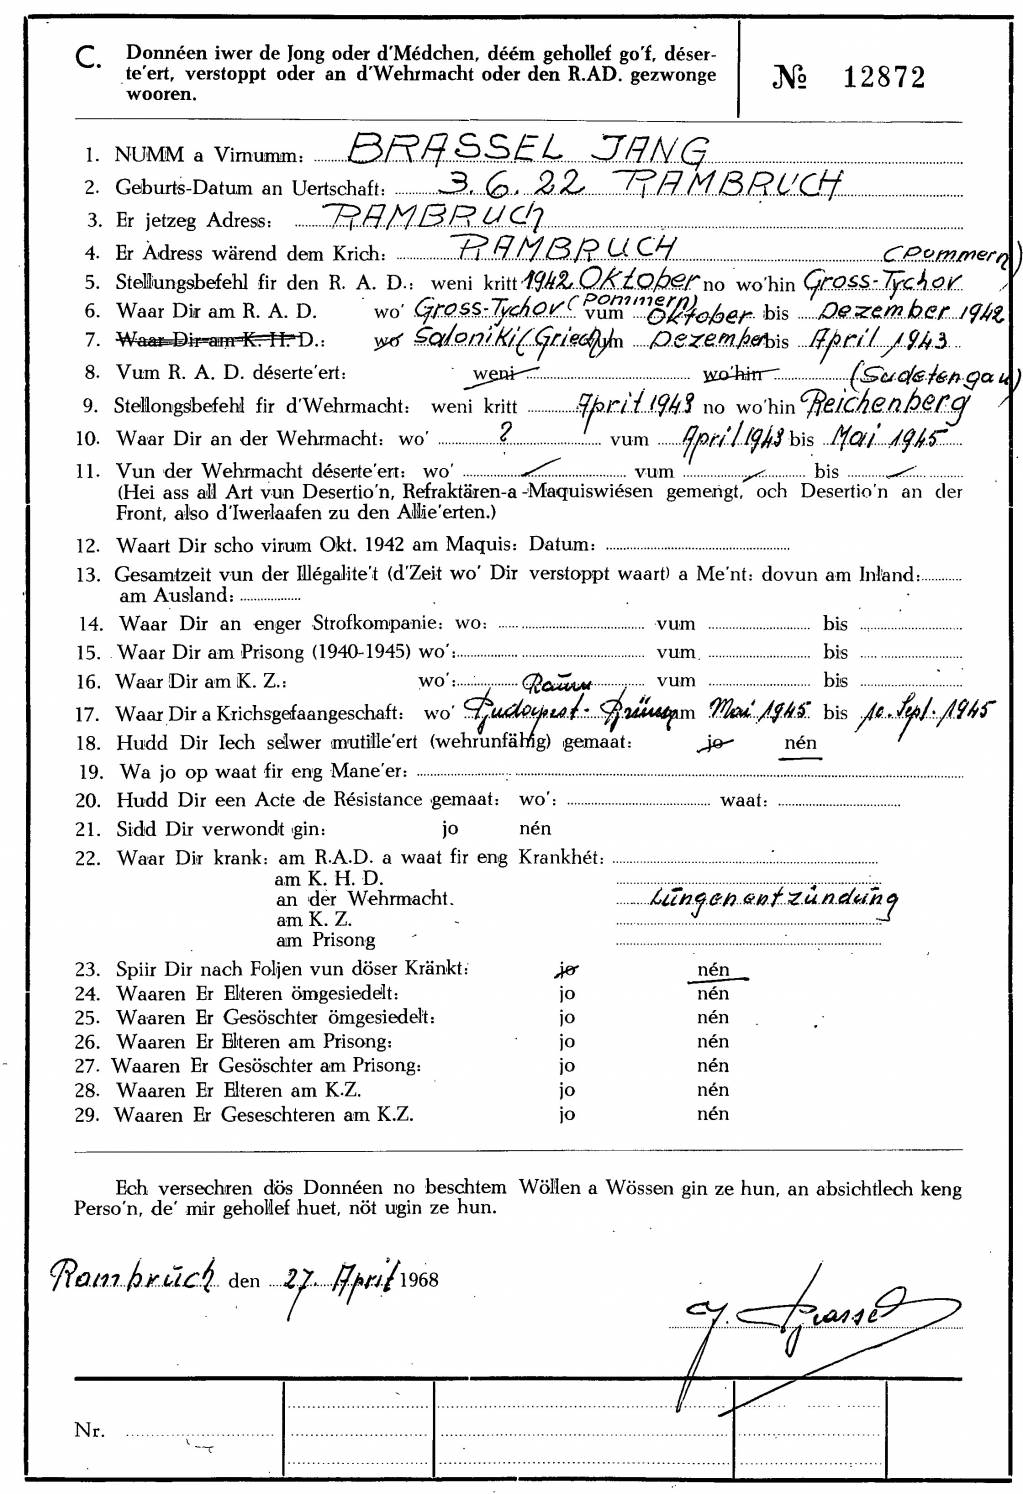 C. Donnéen iwer de Jong oder d'Médchen, déém gehollef go'f, déser-
te'ert, verstoppt oder an d'Wehrmacht oder den R.AD. gezwonge
wooren.
№ 12872
1. NUMM a Virnumm: BRASSEL JANG
2. Geburts-Datum an Uertschaft: 3.6.22 RAMBRUCH
3. Er jetzeg Adress: RAMBRUCH
4. Er Adress wärend dem Krich: RAMBRUCH
(Pommern)
5. Stellungsbefehl fir den R. A. D.: weni kritt 1942 Oktober no wo'hin Gross-Tychov
6. Waar Dir am R. A. D. wo' Gross-Tychov (Pommern) vum Oktober bis Dezember 1942
7. Waar Dir am K. H. D.: wo Saloniki (Griech) vum Dezember bis April 1943
8. Vum R. A. D. déserte'ert: weni wo'hin
(Sudetengau)
9. Stellongsbefehl fir d'Wehrmacht: weni kritt April 1943 no wo'hin Reichenberg
10. Waar Dir an der Wehrmacht: wo' ? vum April 1943 bis Mai 1945
11. Vun der Wehrmacht déserte'ert: wo' vum bis
(Hei ass all Art vun Desertio'n, Refraktären-a-Maquiswiésen gemengt, och Desertio'n an der
Front, also d'Iwerlaafen zu den Allie'erten.)
12. Waart Dir scho virum Okt. 1942 am Maquis: Datum:
13. Gesamtzeit vun der Illégalite't (d'Zeit wo' Dir verstoppt waart) a Me'nt: dovun am Inland:
am Ausland:
14. Waar Dir an enger Strofkompanie: wo: vum bis
15. Waar Dir am Prisong (1940-1945) wo': vum bis
16. Waar Dir am K. Z.: wo': vum bis
17. Waar Dir a Krichsgefaangeschaft: wo' Budapest- vum Mai 1945 bis 10. Sept. 1945
18. Hudd Dir Iech selwer mutille'ert (wehrunfähig) gemaat: jo nén
19. Wa jo op waat fir eng Mane'er:
20. Hudd Dir een Acte de Résistance gemaat: wo': waat:
21. Sidd Dir verwondt gin: jo nén
22. Waar Dir krank: am R.A.D. a waat fir eng Krankhét:
am K. H. D.
an der Wehrmacht. Lungenentzündung
am K. Z.
am Prisong
23. Spiir Dir nach Foljen vun döser Kränkt: jo nén
24. Waaren Er Elteren ömgesiedelt: jo nén
25. Waaren Er Gesöschter ömgesiedelt: jo nén
26. Waaren Er Elteren am Prisong: jo nén
27. Waaren Er Gesöschter am Prisong: jo nén
28. Waaren Er Elteren am K.Z. jo nén
29. Waaren Er Geseschteren am K.Z. jo nén
Ech versechren dös Donnéen no beschtem Wöllen a Wössen gin ze hun, an absichtlech keng
Perso'n, de' mir gehollef huet, nöt ugin ze hun.
Rambruch den 27. April 1968
J. Brassel
Nr.